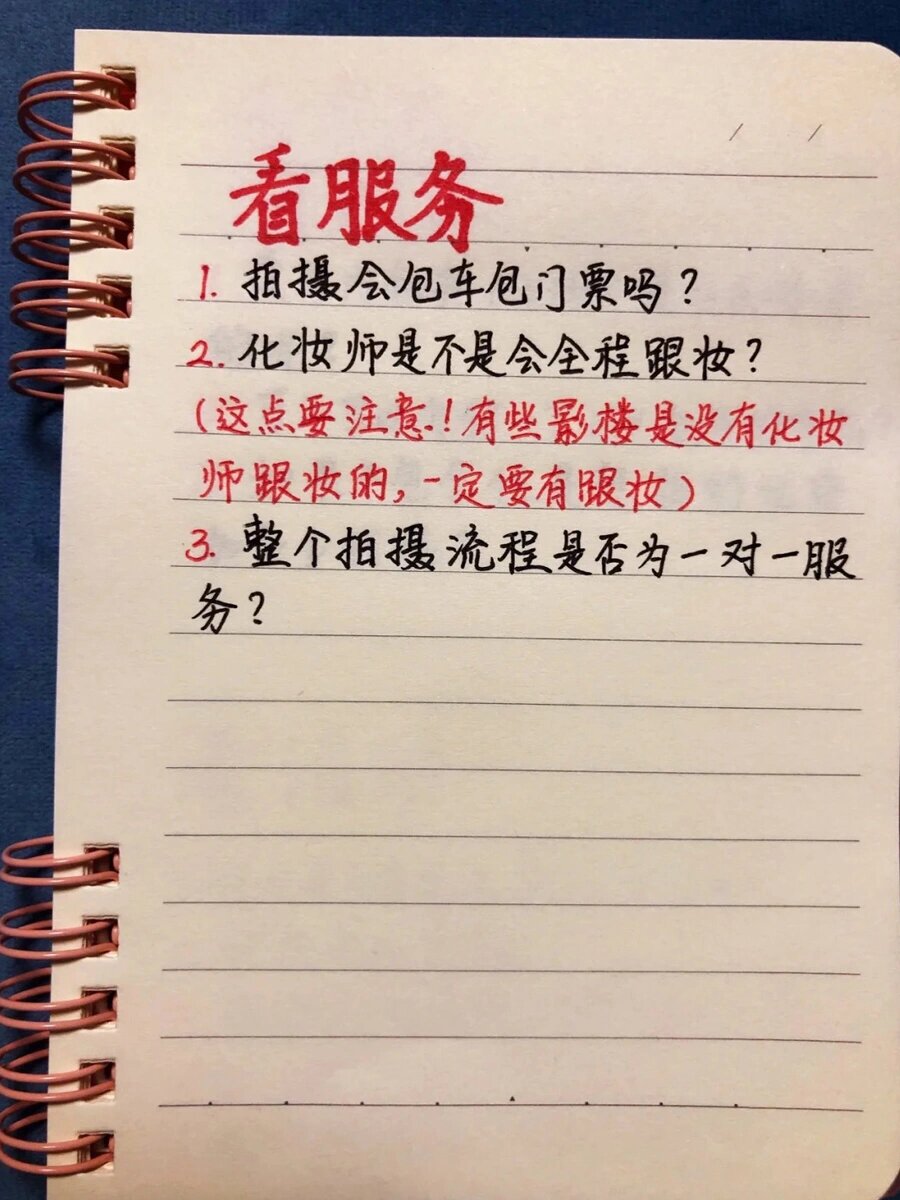 看服务
1. 拍摄会包车包门票吗?
2. 化妆师是不是会全程跟妆?
(这点要注意!有些影楼是没有化妆
师跟妆的,一定要有跟妆)
3. 整个拍摄流程是否为一对一服
务?